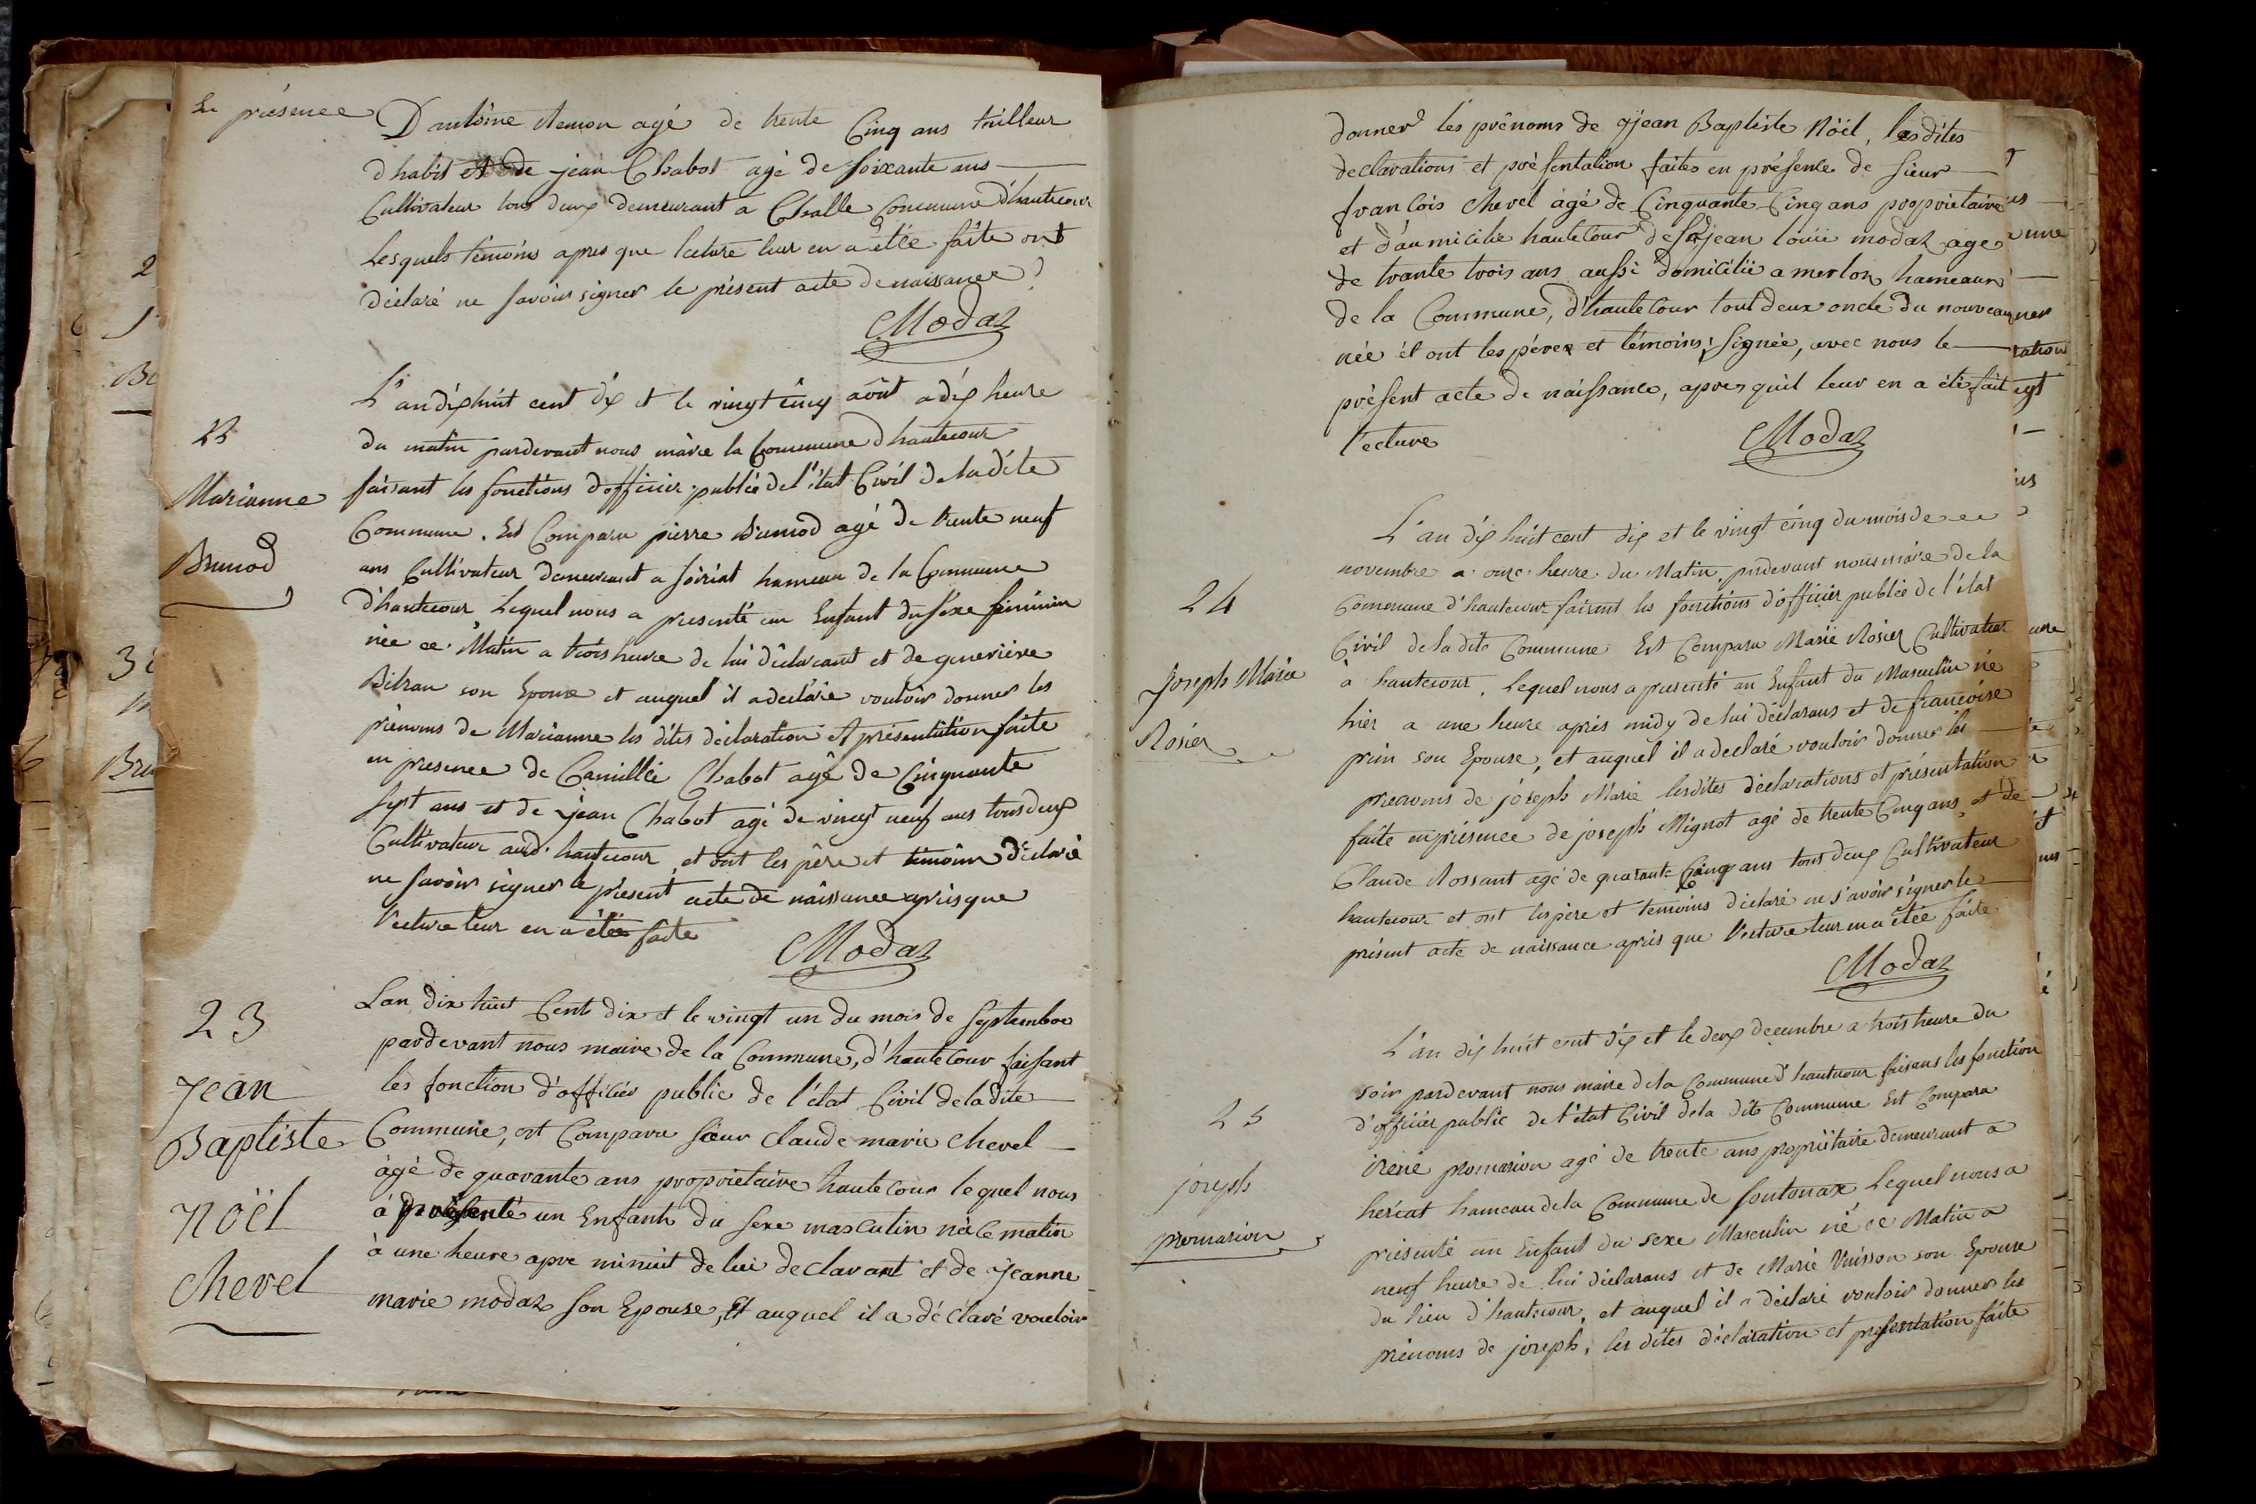 En présence
D'antoine Remon agé de trente Cinq ans tailleur
d'habis et de jean Chabot agé de soixante ans
Cultivateur tous deux demeurant a Challe Commune d'hautecour
Lesquels témoins apres que lecture leur en a étée faite ont
déclaré ne savoir signer le présent acte de naissance
Modaz
22
Marianne
Brunod
L'an dix huit cent dix et le vingt cinq août a dix heure
du matin pardevant nous maire la Commune d'hautecour
faisant les fonctions d'officier public de l'état Civil de la dite
Commune. Est Comparu pierre Brunod agé de trente neuf
ans Cultivateur demeurant a soiriat hameau de la Commune
d'hautecour Lequel nous a presenté un Enfant du séxe féminin
née ce Matin a trois heure de lui déclarant et de geneviève
son Epouse et auquel il a déclaré vouloir donner les
prénoms de Marianne les dites déclaration et présentation faite
en presence de Camille Chabot agé de Cinquante
sept ans et de jean Chabot agé de vingt neuf ans tous deux
Cultivateur aud. hautecour, et ont les père et témoins déclaré
ne savoir signer le présent acte de naissance après que
lecture leur en a étée faite
Modaz
23
Jean
Baptiste
Nöël
Chevel
Lan dix huit Cent dix et le vingt un du mois de Septembre
pardevant nous maire de la Commune, d'hautecour faisant
les fonction d'officier public de l'état Civil de la dite
Commune, est Comparu sieur Claude marie Chevel
àgé de quarante ans proprietaire hautecour le quel nous
à présenté un Enfant du sexe masculin né ce matin
à une heure apre minuit de lui declarant et de Jeanne
marie modaz son Epouse, Et auquel il a déclaré vouloir
donner les prénoms de jean Baptiste Nöël, les dites
declarations et présentation faites en présence de sieur
françois Chevel àgé de Cinquante Cinq ans proprietaire
et d'aumicilié hautecour de Sr jean louii modaz age
de trante trois ans aussi domicilié a merloz hameaux
de la Commune, d'hautecour tout deux oncle du nouveau
née èt ont les pérez et témoins, signée, avec nous le
présent acte de naissance, aprez quil leur en a été fait
lecture
Modaz
24
Joseph Marie
Rosier
L'an dix huit cent dix et le vingt cinq du mois de
novembre a onze heure du Matin. pardevant nous maire de la
Commune d'hautecour faisant les fonctions d'officier public de l'état
Civil de la dite Commune Est Comparu Marie Rosier Cultivateur
à hautecour, Lequel nous a presenté un Enfant du Masculin né
hier a une heure après midy de lui déclarans et de françoise
prin son Epouse, et auquel il a declaré vouloir donner les
prenoms de joseph Marie lesdites déclarations et présentation
faite en présence de joseph Mignot agé de trente Cinq ans et de
Claude Rossant agé de quarante Cinq ans tous deux Cultivateur
hautecour et ont les père et temoins déclaré ne savoir signer le
présent acte de naissance après que lecture leur en a étée faite
Modaz
25
joseph
promarion
L'an dix huit cent dix et le deux decembre a trois heure du
soir pardevant nous maire de la Commune d'hautecour faisans les fonction
d'officier public de l'état Civil de la dite Commune Est Compara
irené promarion agé de trente ans propriétaire demeurant a
heriat hameau de la Commune de soutonax Lequel nous a
présenté un Enfant du sexe Masculin né ce Matin a
neuf heure de lui déclarans et de Marie Vuisson son Epouse
du lieu d'hautecour, et auquel il a déclaré vouloir donner les
prénoms de joseph, les dites déclaration et présentation faite